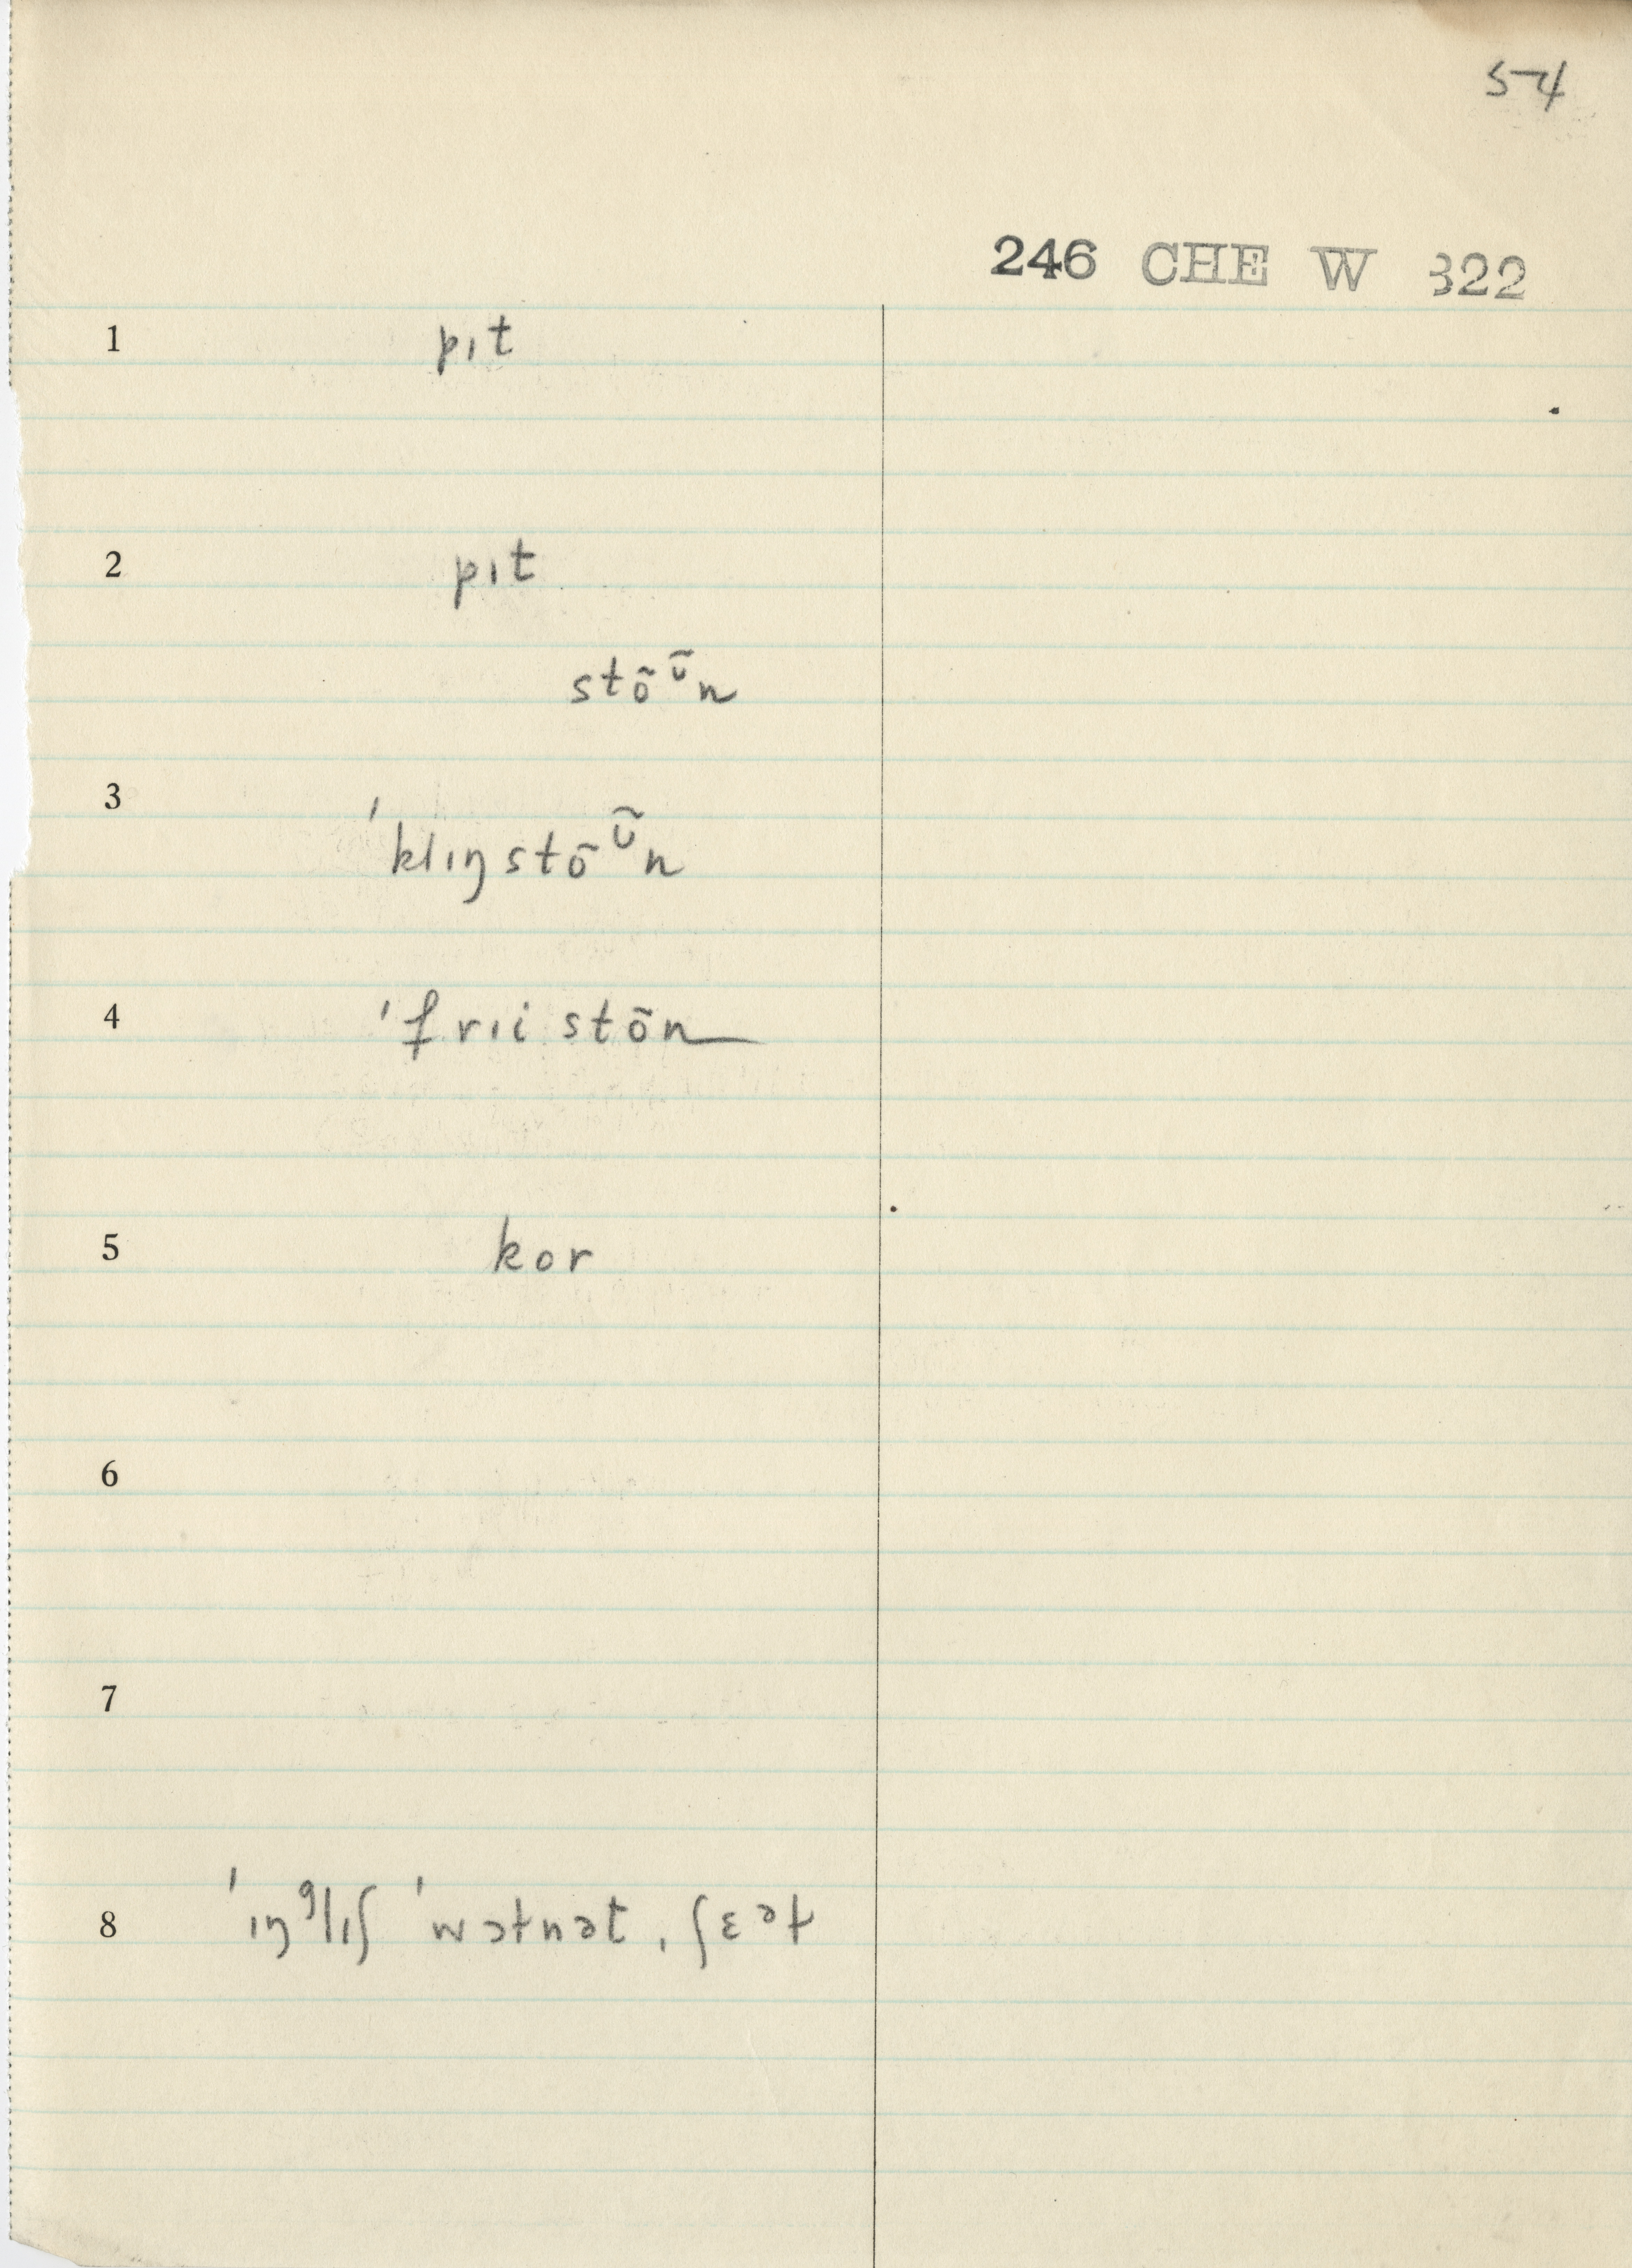 54
246 CHE W 322
1 pɪt
2 pɪt
stõᶷ̃n
3 ˈklɪŋstõᶷ̃n
4 ˈfrɪistõn
5 kor
6
7
8 ˈɪŋᶢlɪʃ ˈwɔɫnət, ʃɛᵊɫ